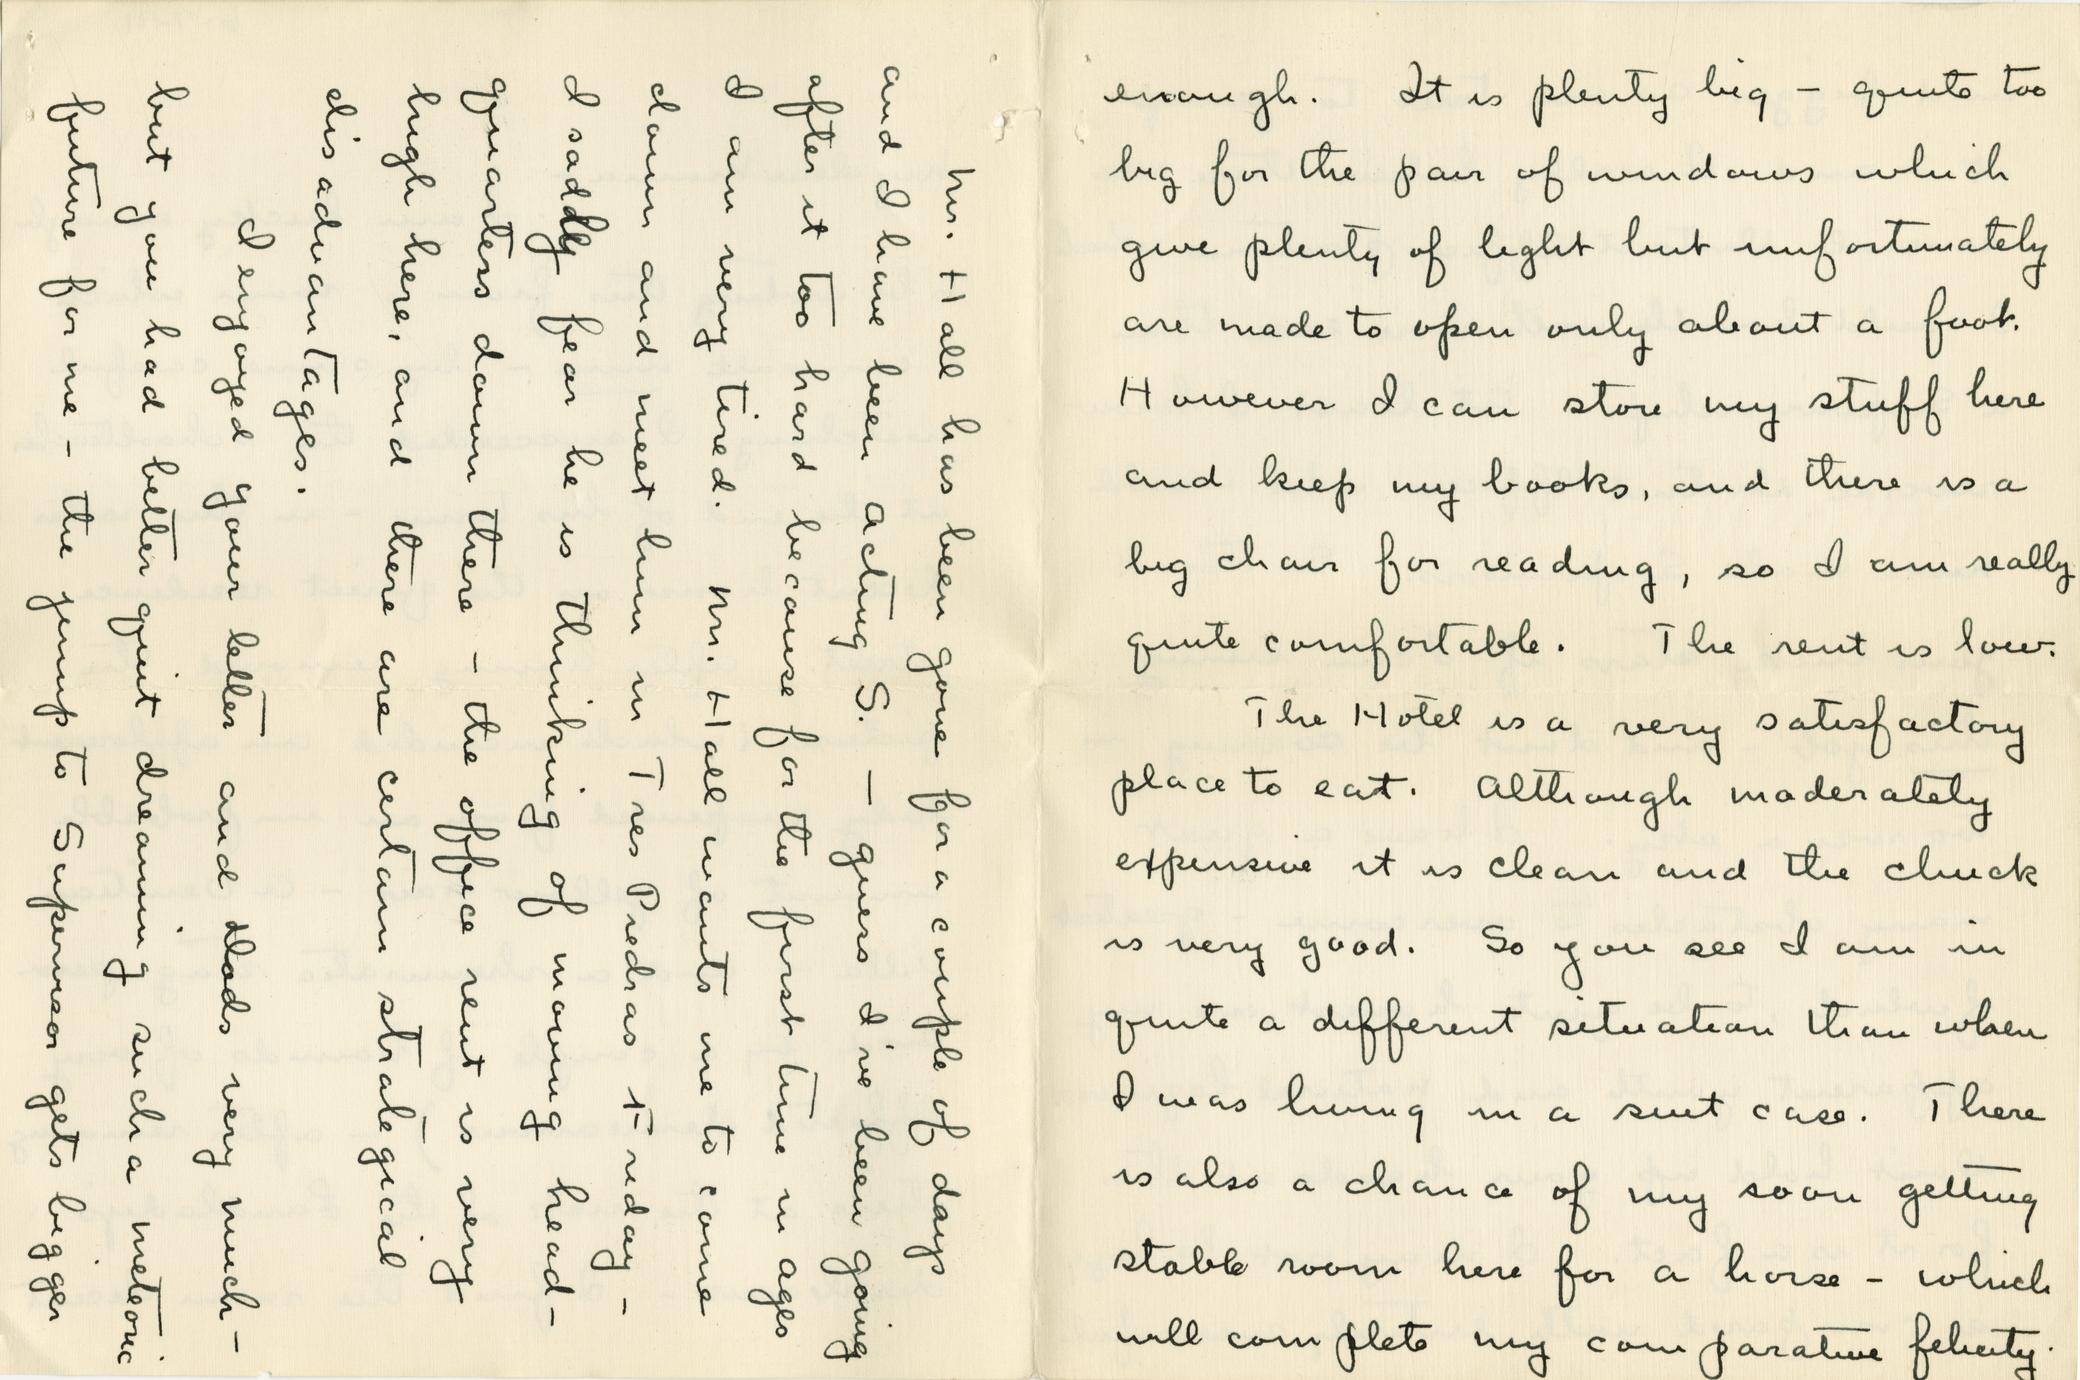 enough. It is plenty big – quite too
big for the pair of windows which
give plenty of light but unfortunately
are made to open only about a foot.
However I can store my stuff here
and keep my books, and there is a
big chair for reading, so I am really
quite comfortable. The rent is low.
The Hotel is a very satisfactory
place to eat. Although moderately
expensive it is clean and the chuck
is very good. So you see I am in
quite a different situation than when
I was living in a suit case. There
is also a chance of my soon getting
stable room here for a horse – which
will complete my comparative felicity.
Mr. Hall has been gone for a couple of days
and I have been acting S. – guess I've been going
after it too hard because for the first time in ages
I am very tired. Mr. Hall wants me to come
down and meet him in Tres Piedras Friday –
I sadly fear he is thinking of moving head-
quarters down there – the office rent is very
high here, and there are certain strategical
disadvantages.
I enjoyed your letter and Dads very much –
but you had better quit dreaming such a meteoric
future for me – the jump to Supervisor gets bigger